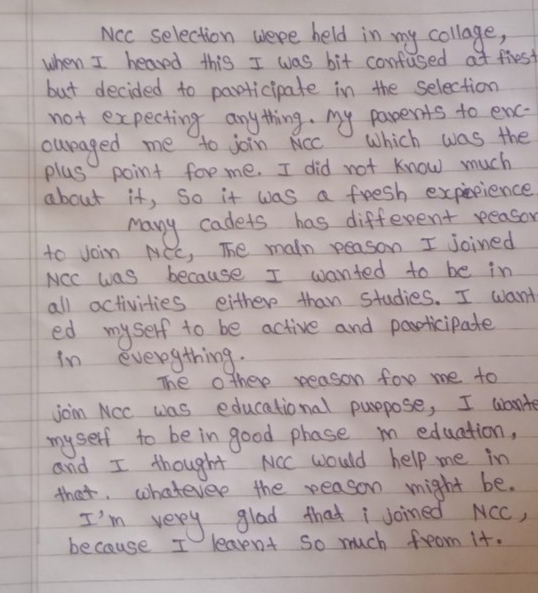 NCC selection were held in my collage,
when I heard this I was bit confused at first
but decided to participate in the selection
not expecting anything. My parents to enc-
ouraged me to join NCC which was the
plus point for me. I did not know much
about it, so it was a fresh experience
Many cadets has different reason
to join NCC, The main reason I joined
NCC was because I wanted to be in
all activities either than studies. I want
ed myself to be active and participate
in everything.
The other reason for me to
join NCC was educational purpose, I wante
myself to be in good phase in eduation,
and I thought NCC would help me in
that. whatever the reason might be.
I'm very glad that i joined NCC,
because I learnt so much from it.